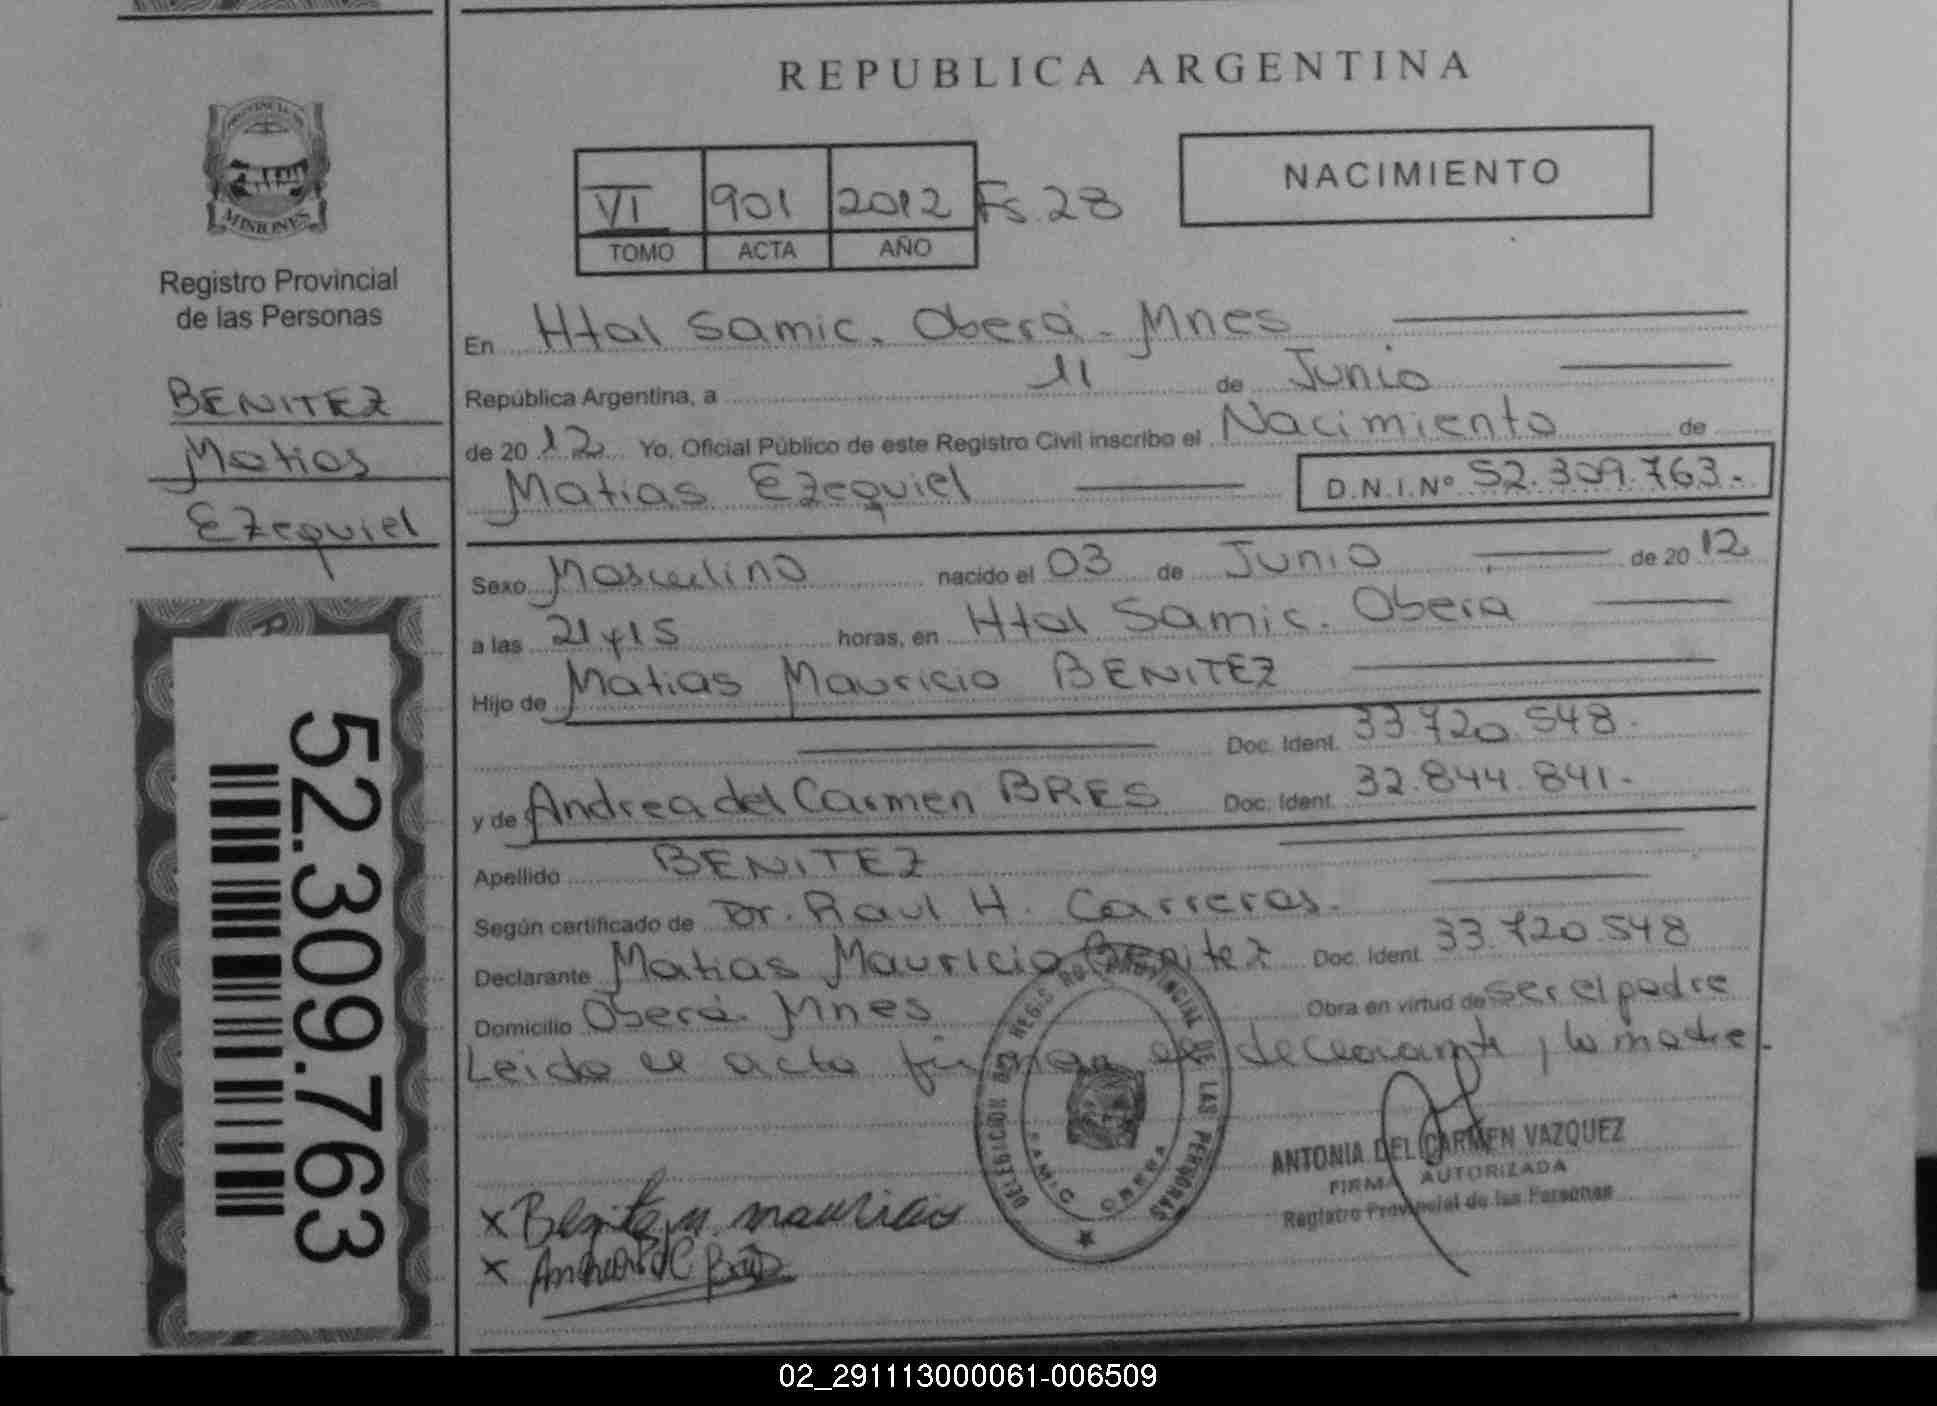 REPUBLICA ARGENTINA
PROVINCIA DE
MISIONES
Registro Provincial
de las Personas
BENITEZ
Matias
Ezequiel
52.309.763
VI 901 2012 Fs. 28
TOMO ACTA AÑO
NACIMIENTO
En Htal Samic. Oberá. Mnes
República Argentina, a 11 de Junio
de 2012 Yo, Oficial Público de este Registro Civil inscribo el Nacimiento de
Matias Ezequiel D.N.I.Nº 52.309.763.-
Sexo Masculino nacido el 03 de Junio de 2012
a las 21 y 15 horas, en Htal Samic. Obera
Hijo de Matias Mauricio BENITEZ
Doc. Ident. 33.720.548.-
y de Andrea del Carmen BRES Doc. Ident. 32.844.841.-
Apellido BENITEZ
Según certificado de Dr. Raul H. Carreras.
Declarante Matias Mauricio Benitez Doc. Ident. 33.720.548
Domicilio Oberá. Mnes Obra en virtud de ser el padre
Leido el acta firman el declarante y la madre.
DELEGACION DEL REGISTRO PROVINCIAL DE LAS PERSONAS
SAMIC OBERA
ANTONIA DEL CARMEN VAZQUEZ
FIRMA AUTORIZADA
Registro Provincial de las Personas
x Benitez m. mauricio
x Andrea del C
02_291113000061-006509